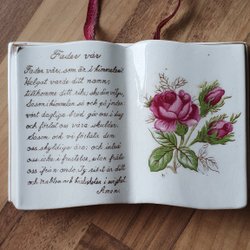 Fader vår
Fader vår, som är i himmelen!
Helgat varde ditt namn;
tillkomme ditt rike; ske din vilja,
såsom i himmelen så ock på jorden;
vårt dagliga bröd giv oss i dag;
och förlåt oss våra skulder,
såsom ock vi förlåta dem
oss skyldiga äro; och inled
oss icke i frestelse, utan fräls
oss ifrån ondo. Ty riket är ditt
och makten och härligheten i evighet.
Amen.